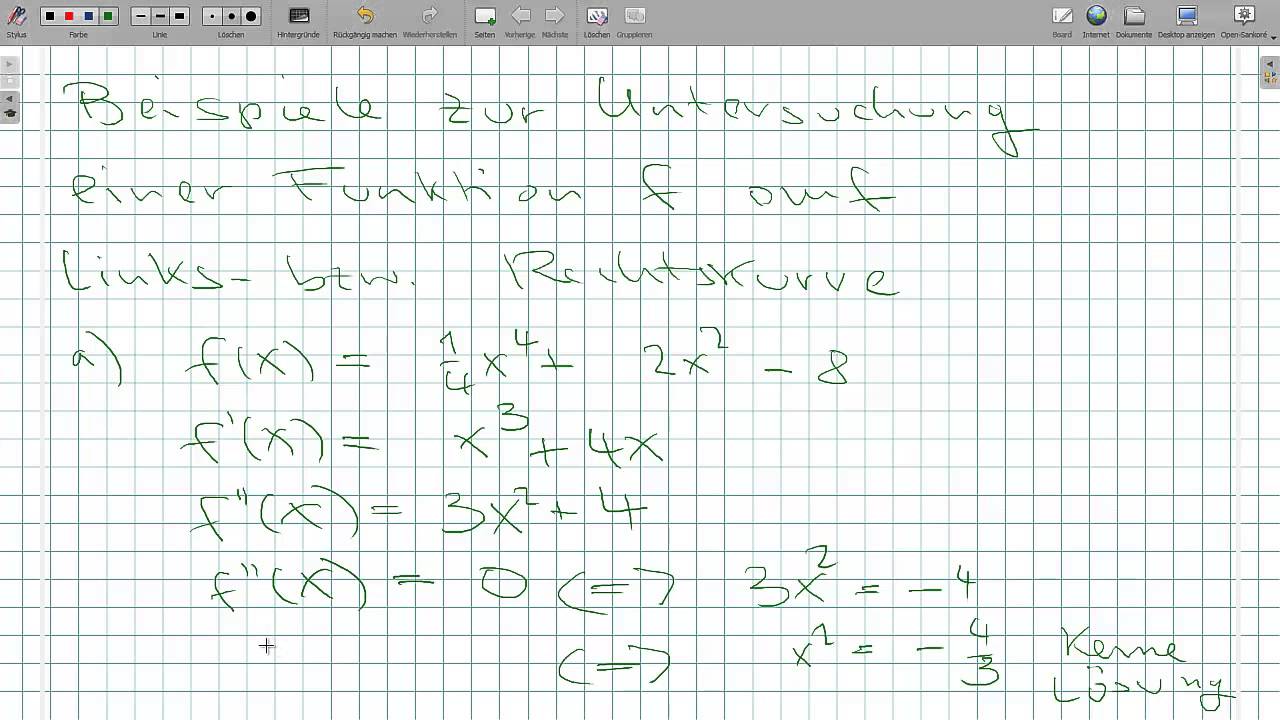 Stylus Farbe Linie Löschen Hintergründe Rückgängig machen Wiederherstellen Seiten Vorherige Nächste Löschen Gruppieren Board Internet Dokumente Desktop anzeigen Open-Sankoré
Beispiele zur Untersuchung
einer Funktion f auf
Links- bzw. Rechtskurve
a) f(x) = 1/4 x⁴ + 2x² - 8
f'(x) = x³ + 4x
f''(x) = 3x² + 4
f''(x) = 0 (=) 3x² = -4
(=) x² = - 4/3 Keine
Lösung